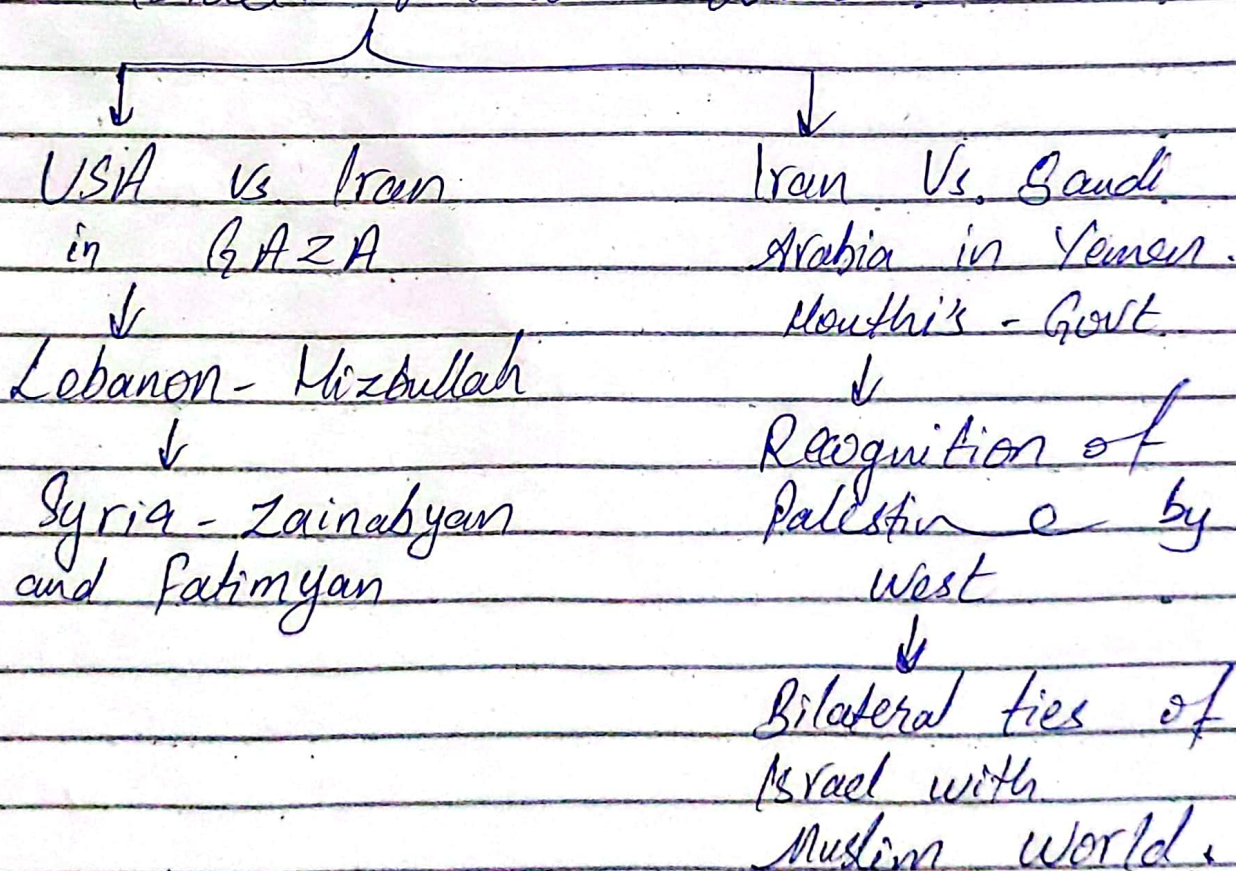 USA vs. Iran
in GAZA
↓
Lebanon - Hizbullah
↓
Syria - Zainabyan
and Fatimyan
Iran Vs. Saudi
Arabia in Yemen.
Houthi's - Govt.
↓
Recognition of
Palestine by
West
↓
Bilateral ties of
Israel with
Muslim World.